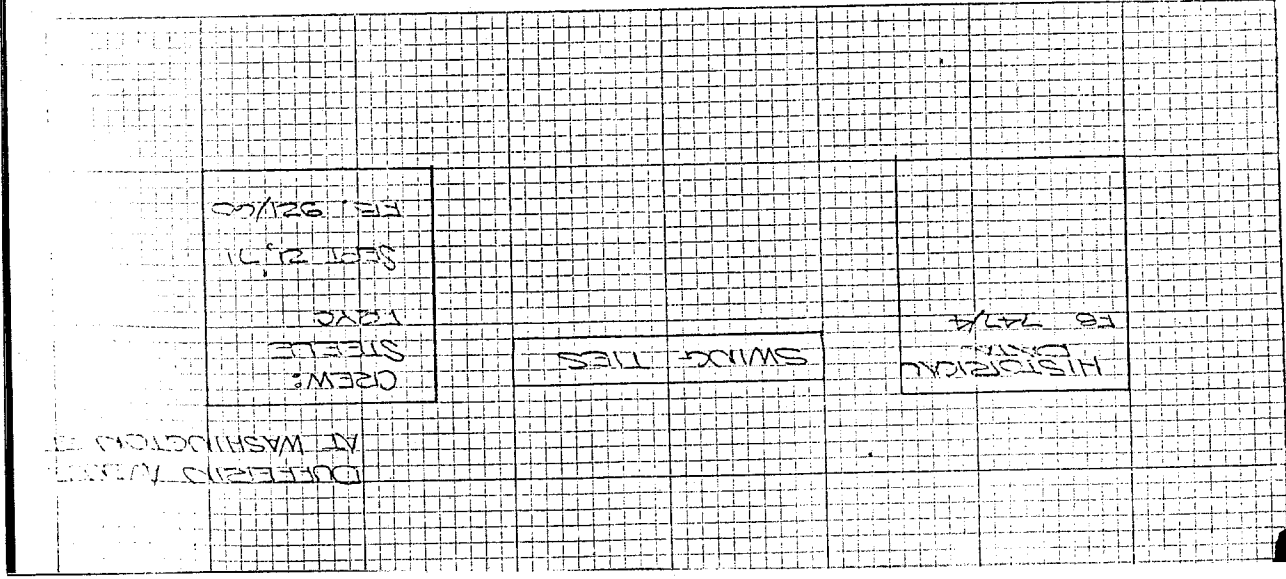 DUFFERIN
AT WASHINGTON
HISTORICAL
DATA
FB 747/4
SWING TIES
CREW:
STEELE
SEPT 21, 71